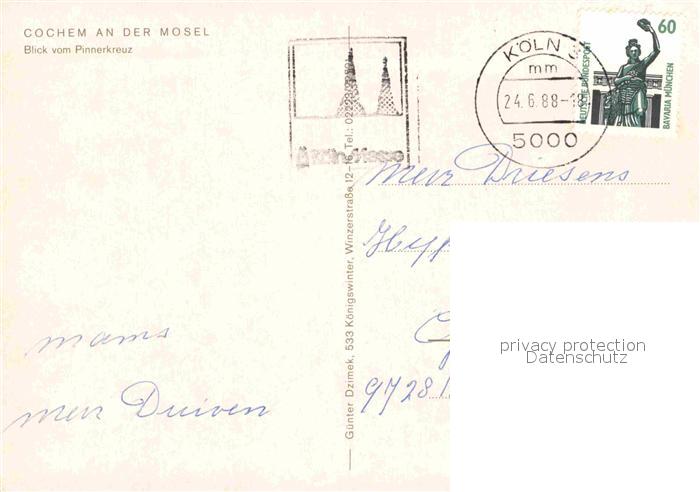 COCHEM AN DER MOSEL
Blick vom Pinnerkreuz
KÖLN 3
mm
24.6.88-18
5000
60
DEUTSCHE BUNDESPOST
BAVARIA MÜNCHEN
Köln Messe
mevr Driesens
9728
privacy protection
Datenschutz
mams
mevr Duiven
Günter Dzimek, 533 Königswinter, Winzerstraße 12-16, Tel.: 02223/